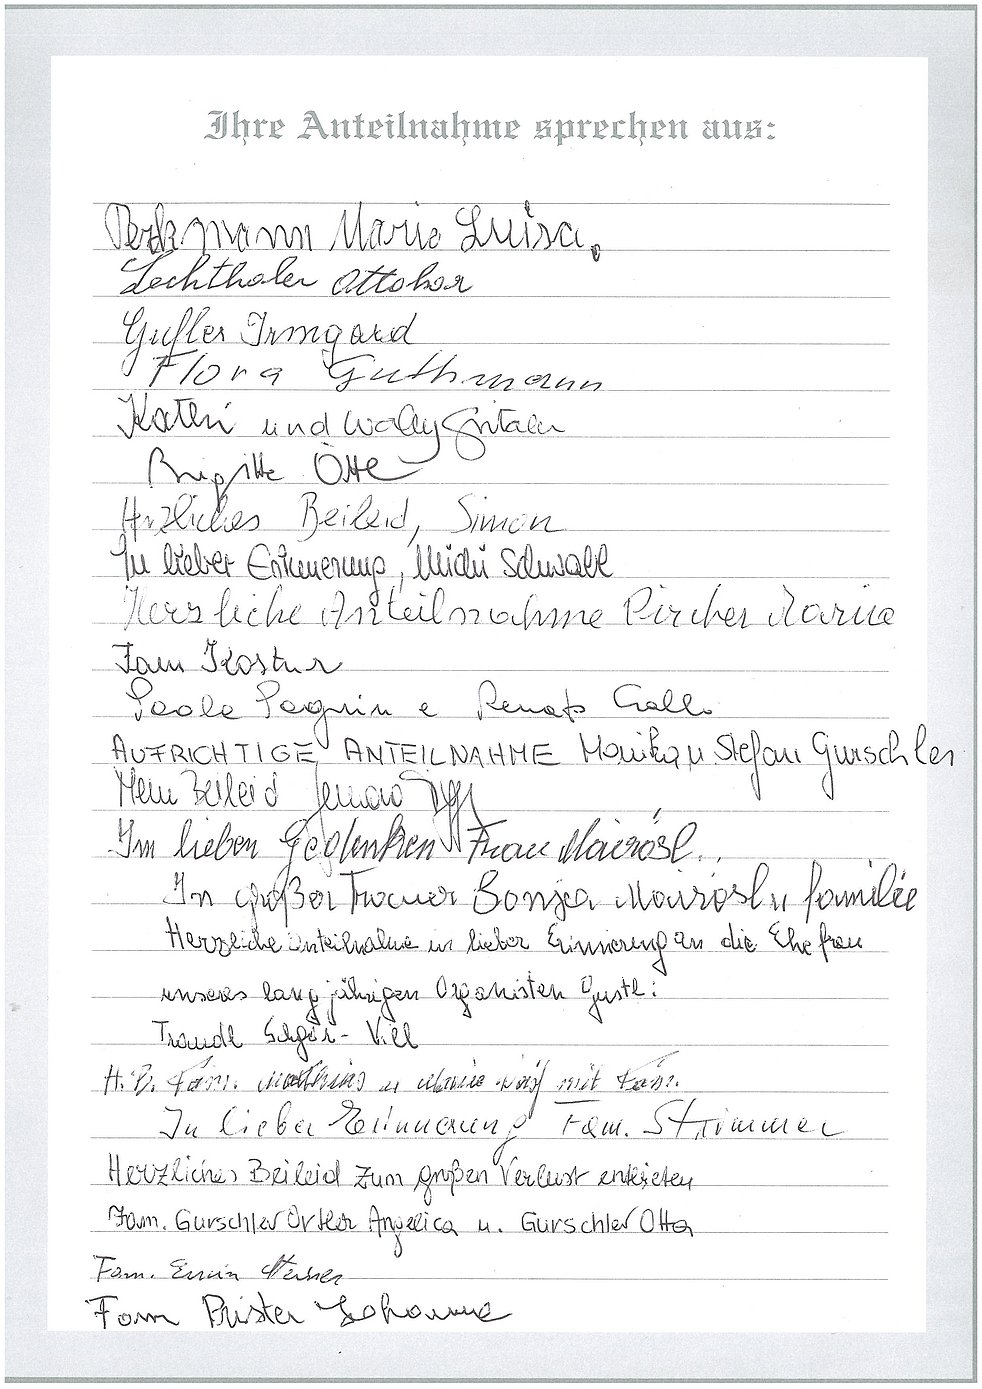 Ihre Anteilnahme sprechen aus:
Perkmann Maria Luisa.
Lechthaler Ottokar
Gufler Irmgard
Flora Guthmann
Kathi und Wally
Brigitte Otte
Herzliches Beileid, Simon
In lieber Erinnerung, Michi Schwalt
Herzliche Anteilnahme Pircher Maria
Fam Kostner
Paola Pagnin e Renato Gallo
AUFRICHTIGE ANTEILNAHME Monika u Stefan Gurschler
Mein Beileid
Im lieben Gedenken Frau Mairösl..
In großer Trauer Sonja Mairösl u familie
Herzliche Anteilnahme in lieber Erinnerung an die Ehefrau
unseres langjährigen Organisten Gustl:
Traudl - Vill
H.B. Fam. Mathias u Maria mit Fam.
In lieber Erinnerung Fam. Strimmer
Herzliches Beileid zum großen Verlust entbieten
Fam. Gurschler Ortler Angelica u. Gurschler Otto
Fam. Erwin
Fam Johanna